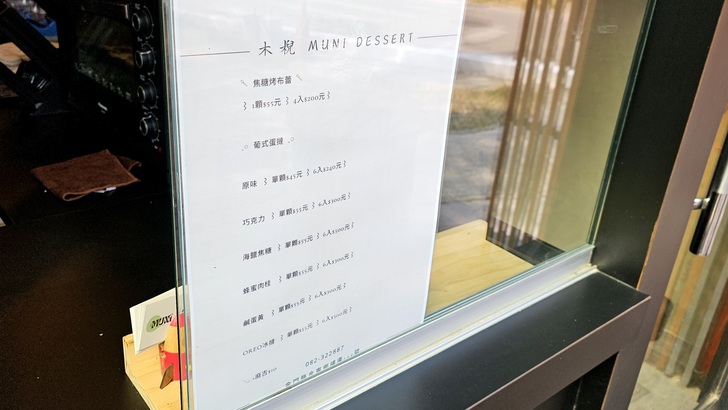 木棿 MUNI DESSERT
焦糖烤布蕾
1顆$55元 4入$200元
葡式蛋撻
原味 單顆$45元 6入$240元
巧克力 單顆$55元 6入$300元
海鹽焦糖 單顆$55元 6入$300元
蜂蜜肉桂 單顆$55元 6入$300元
鹹蛋黃 單顆$55元 6入$300元
OREO冰磚 單顆$55元 6入$300元
麻吉$10
082-322887
金門縣金
MUNI